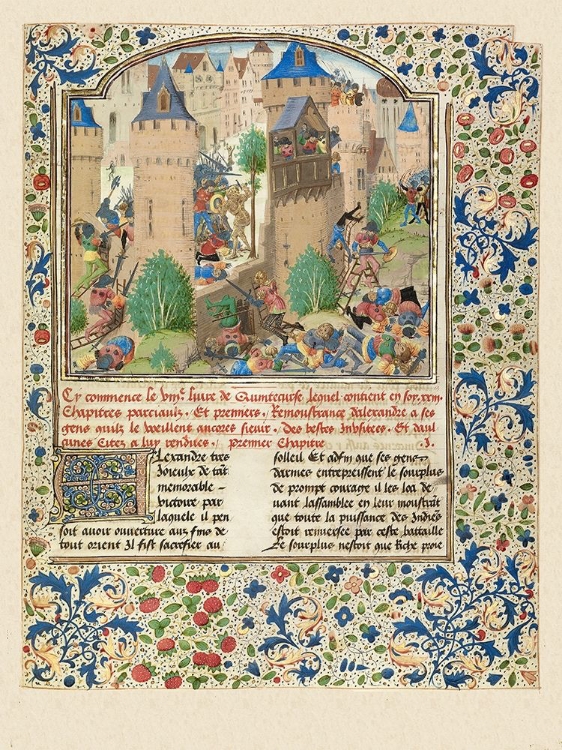 Cy commence le viiie livre de Quintecurse lequel contient en soy xxiiii
Chapitres parciaulx. Et premiers. Remoustrance dalexandre a ses
gens quilz le voeillent ancores sievir. Des bestes Indsites. Et daul
cunes Citez a luy rendues. premier Chapitre .I.
Alexandre tres
Joieulx de tāt
memorable –
victoire par
laquele il pen
soit avoir ouverture aux fins de
tout orient Il fist sacrefier au
solleil Et adfin que ses gens
darmes entrepreissent le sourplus
de prompt courage il les loa de
vant lassamblee en leur moustrāt
que toute la puissance des Indiēs
estoit renversee par ceste bataille
Le sourplus nestoit que Riche proie